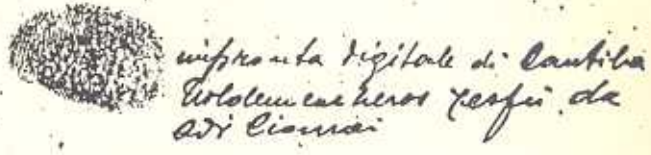 impronta digitale di Cantiba
Woldemeskeros Tesfù da
Adi Ciomai